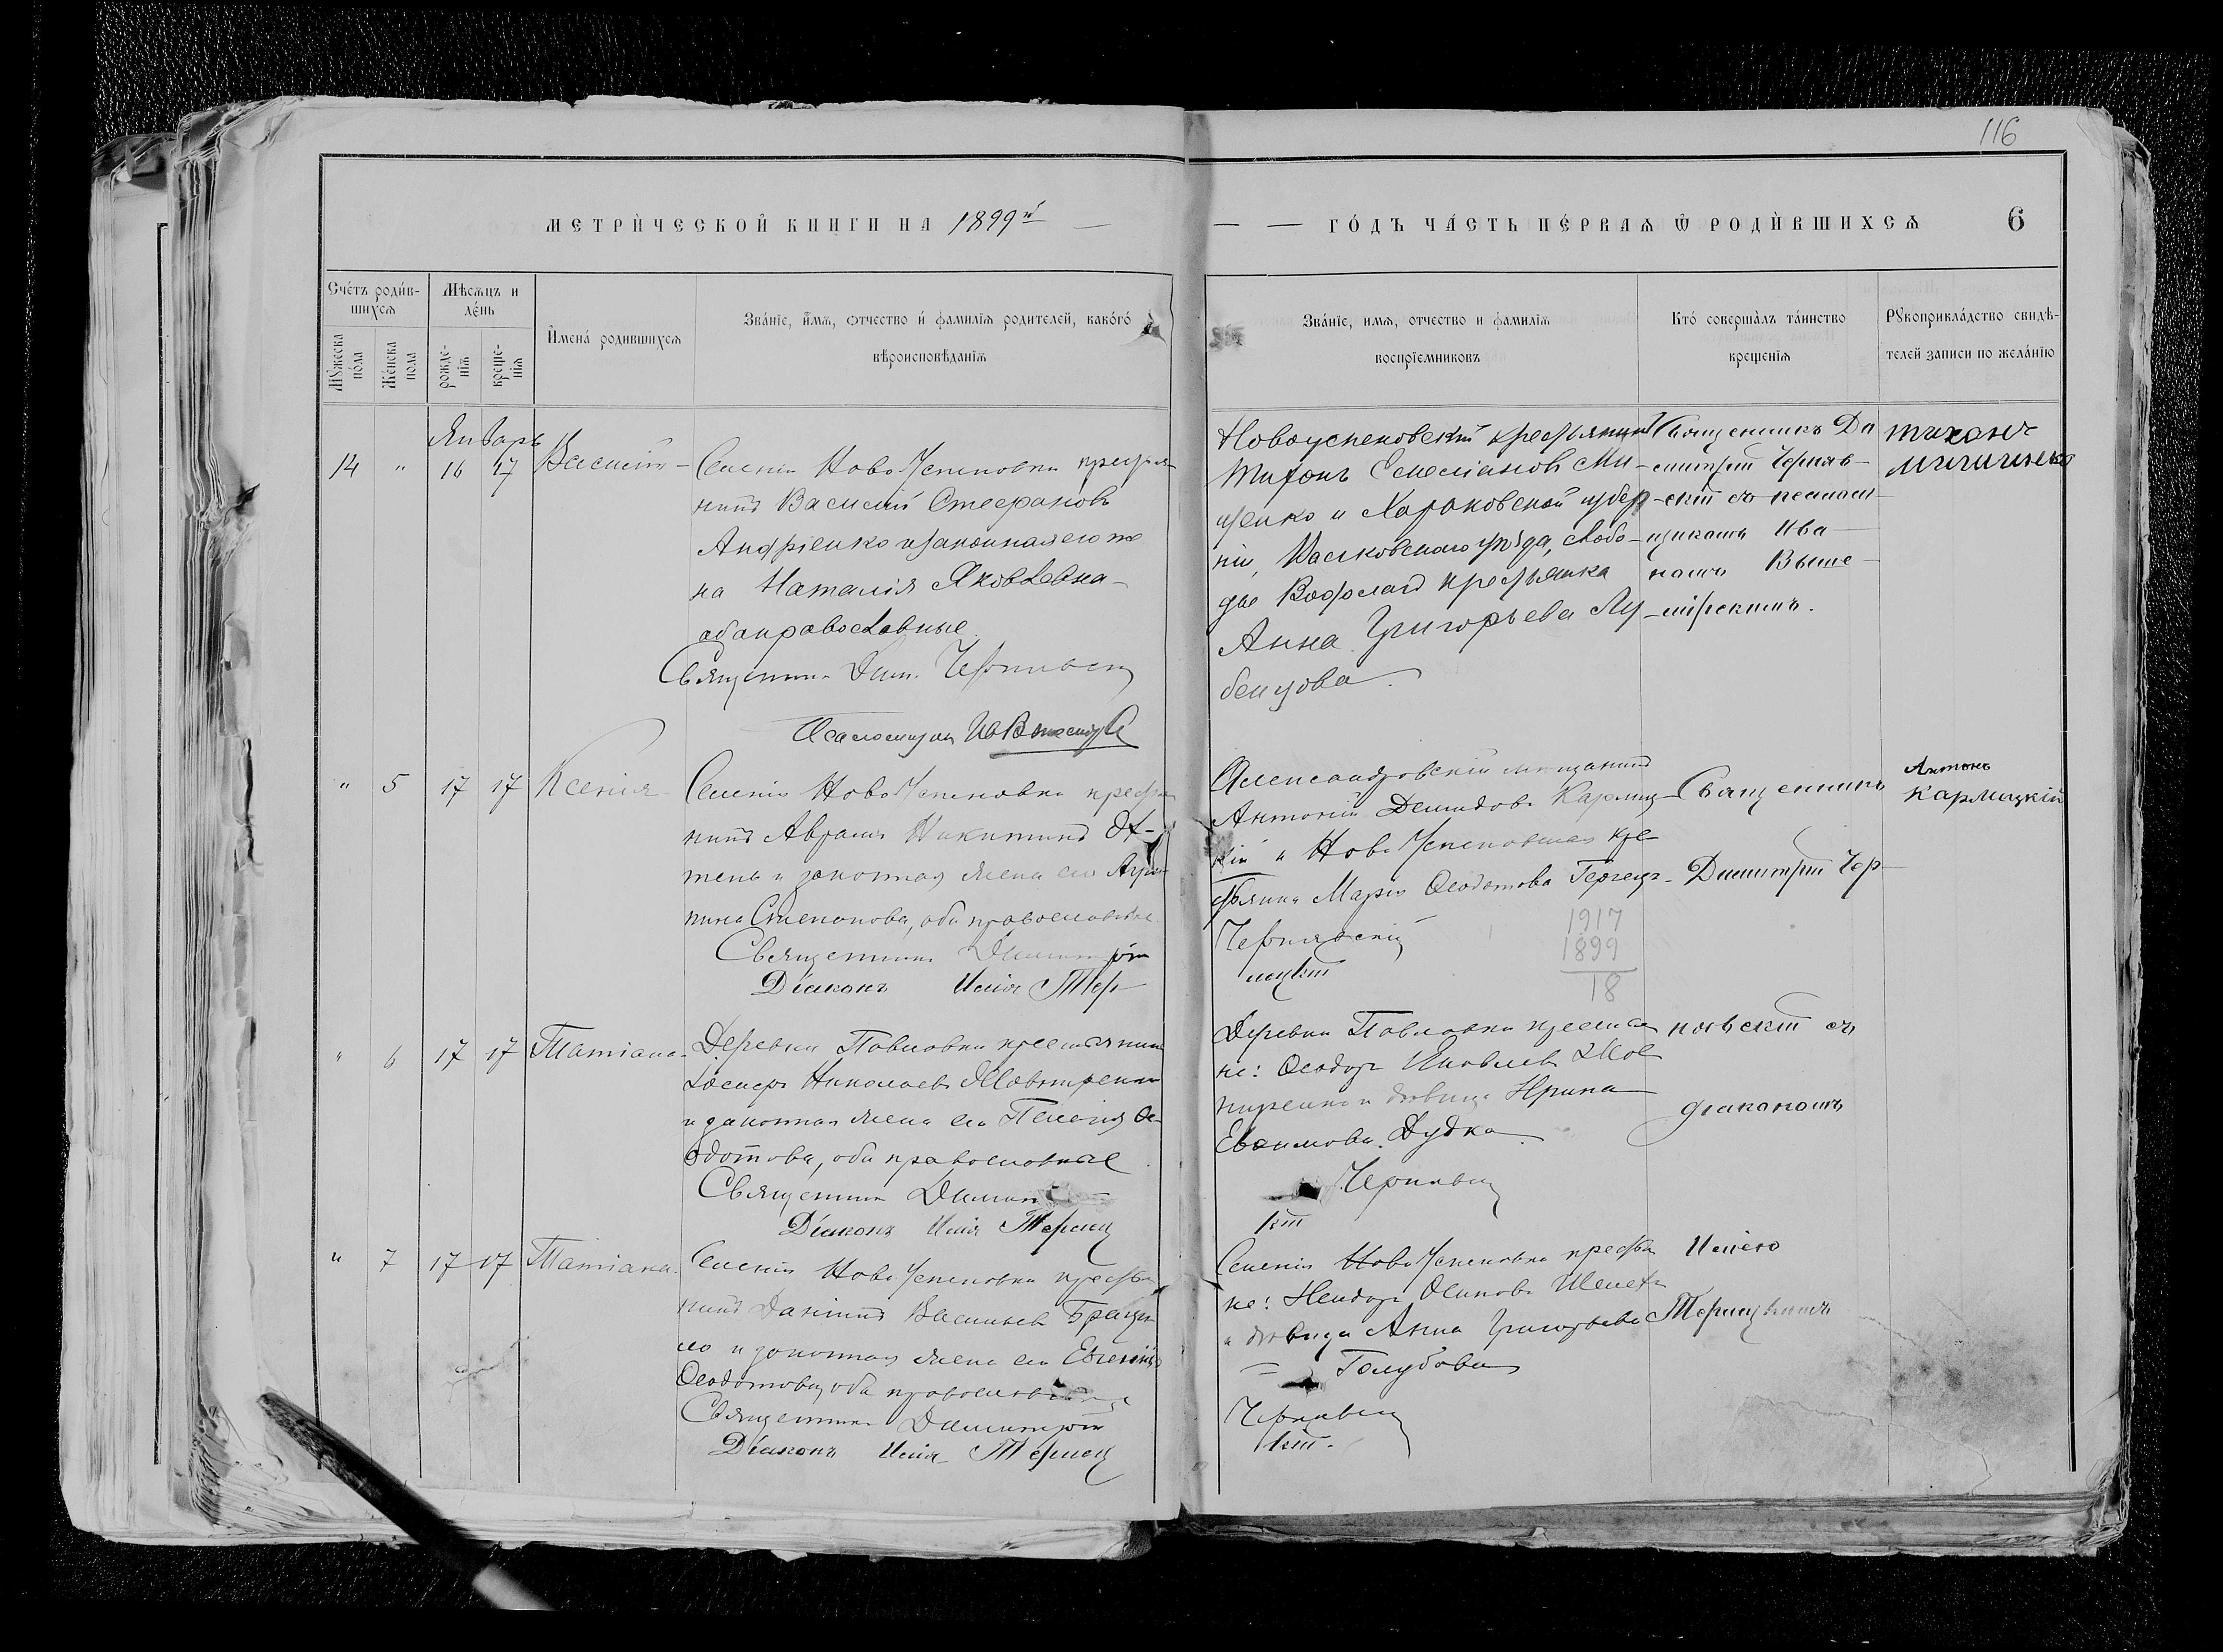 116
МЕТРИ́ЧЕСКОЙ КНИГИ НА 1899й
ГО́ДЪ ЧА́СТЬ ПЕ́РВАѦ Ѿ РОДИ́ВШИХСѦ
6
Сче́тъ роди́в-
шихсѧ
Мꙋ́жеска по́ла
Же́нска пола
Мѣ́сѧцъ и де́нь
рожде-
нїѧ
креще-
нїѧ
И҆мена́ родившихсѧ
Зва́нїе, и҆́мѧ, ѻтчество и҆ фамилїѧ родителей, како́гѡ
вѣроисповѣданїѧ
Зва́нїе, имѧ, отчество и фамилїѧ
воспрїемниковъ
Кто́ соверша́лъ та́инство
крещенїѧ
Рꙋкоприкла́дство свидѣ-
телей записи по жела́нїю
Январь
14 " 16 17 Василій
Селенія НовоУспеновки крестья-
нинъ Василій Стефановъ
Андріенко и законная его же
на Наталія Яковлевна
оба православные
Священник Дим. Чернявск
Псаломщик Ив
Новоуспеновскій крестьянинъ
Тихонъ Емеліановъ Ми-
щенко и Харьковской губер-
ніи, Валковскаго уѣзда, слобо-
ды крестьянка
Анна Григорьева Лу-
бенцова
Священникъ Ди
митрій Черняв-
скій съ псалом
щикомъ Ива
номъ Выше
мірскимъ.
тихонъ
мищинеко
" 5 17 17 Ксенія
Селенія НовоУспеновки крестья
нинъ Аврамъ Никитинъ
и законная жена его Агрип
пина Степанова, оба православные
Священникъ Димитрій
Діаконъ Илія Тер
Александровскій мѣщанинъ
Антоній Демидовъ Кармиц-
кій и НовоУспеновская кре
стьянка Марія Ѳеодотова
Чернявскій
ницкій
1917
1899
18
Священникъ
Димитрій Чер
Антонъ
Кармицкій
" 6 17 17 Татіана
Деревни Павловки крестьянинъ
Николаевъ
и законная жена его Пелагія Ѳе
одотова, оба православные
Священник Димит
Діаконъ Илія Терниц
Деревни Павловки крестья
не: Ѳеодоръ Яковлевъ
и дѣвица Ирина
Евфимова Дудка
Чернявск
кій
нявскій съ
діакономъ
" 7 17 17 Татіана
Селенія НовоУспеновки крестья
нинъ Даніилъ Васильевъ
и законная жена его Евгенія
Ѳеодотова, оба православные
Священник Димитрій
Діаконъ Илія Терниц
Селенія НовоУспеновки крестья
не: Исидоръ Осиповъ
и дѣвица Анна Григорьева
Голубова
Чернявск
кій.
Иліею
Терницкимъ